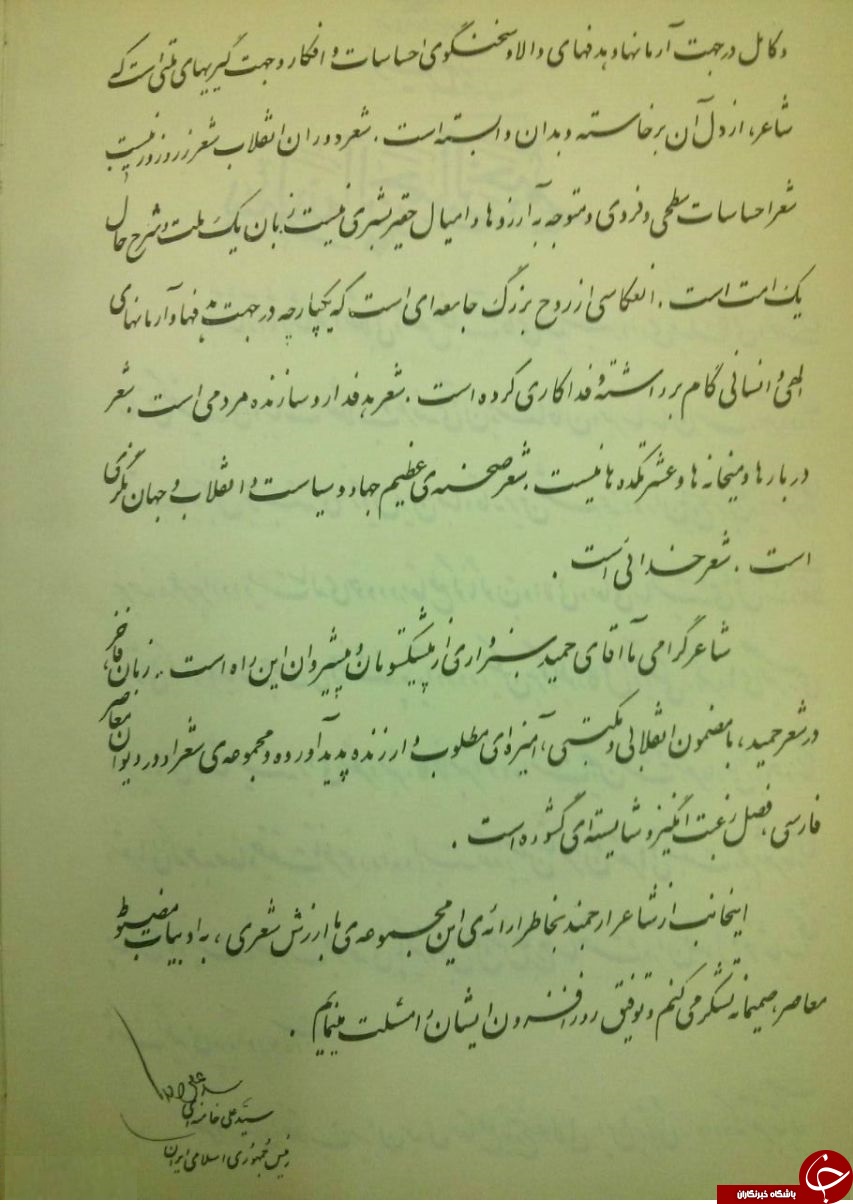 و کامل در جهت آرمانها و هدفهای والا و سخنگوی احساسات و افکار و جهت گیریهای ملتی است که
شاعر، از دل آن برخاسته و بدان وابسته است. شعر دوران انقلاب شعر زر و زور نیست
شعر احساسات سطحی و فردی و متوجه به آرزوها و امیال حقیر بشری نیست زبان یک ملت و شرح حال
یک امت است. انعکاسی از روح بزرگ جامعه ای است که یکپارچه در جهت هدفها و آرمانهای
الهی و انسانی گام برداشته و فداکاری کرده است. شعر هدفدار و سازنده و مردمی است. شعر
دربارها و میخانه ها و عشرتکده ها نیست. شعر صحنه ی عظیم جهاد و سیاست و انقلاب و جهان نگری
است. شعر خدائی است.
شاعر گرامی ما آقای حمید سبزواری از پیشکسوتان و پیشروان این راه است.. زبان فاخر،
در شعر حمید، با مضمون انقلابی و مکتبی، آمیزه ای مطلوب و ارزنده پدید آورده و مجموعه ی شعر او در دیوان معاصر
فارسی، فصل رغبت انگیز و شایسته ای گشوده است.
اینجانب از شاعر ارجمند بخاطر ارائه ی این مجموعه ی با ارزش شعری، به ادبیات مضبوط
معاصر، صمیمانه تشکر می کنم و توفیق روزافزون ایشان را مسئلت مینمایم.
سید علی خامنه ای
رئیس جمهوری اسلامی ایران
باشگاه خبرنگاران